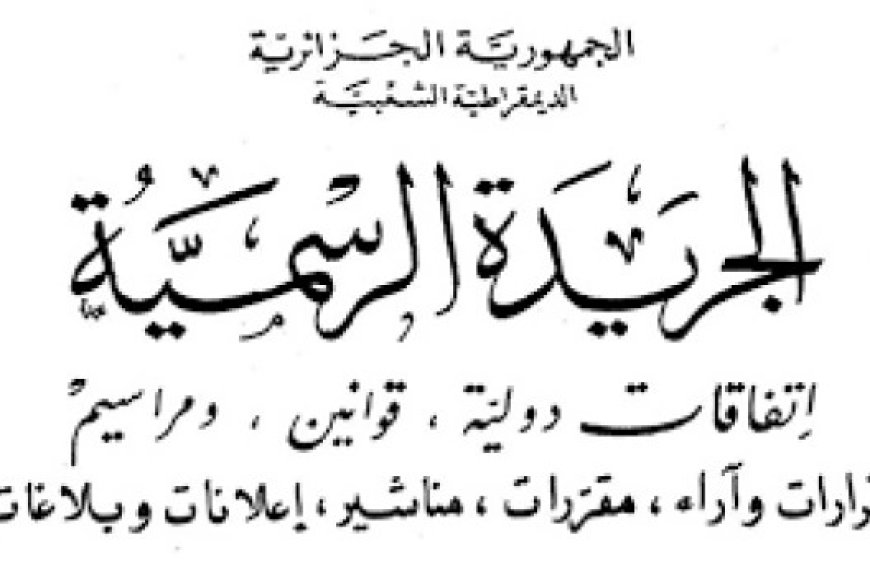 الجمهورية الجزائرية
الديمقراطية الشعبية
الجريدة الرسمية
إتفاقات دولية ، قوانين ، ومراسيم
رارات وآراء ، مقررات ، مناشير ، إعلانات وبلاغات